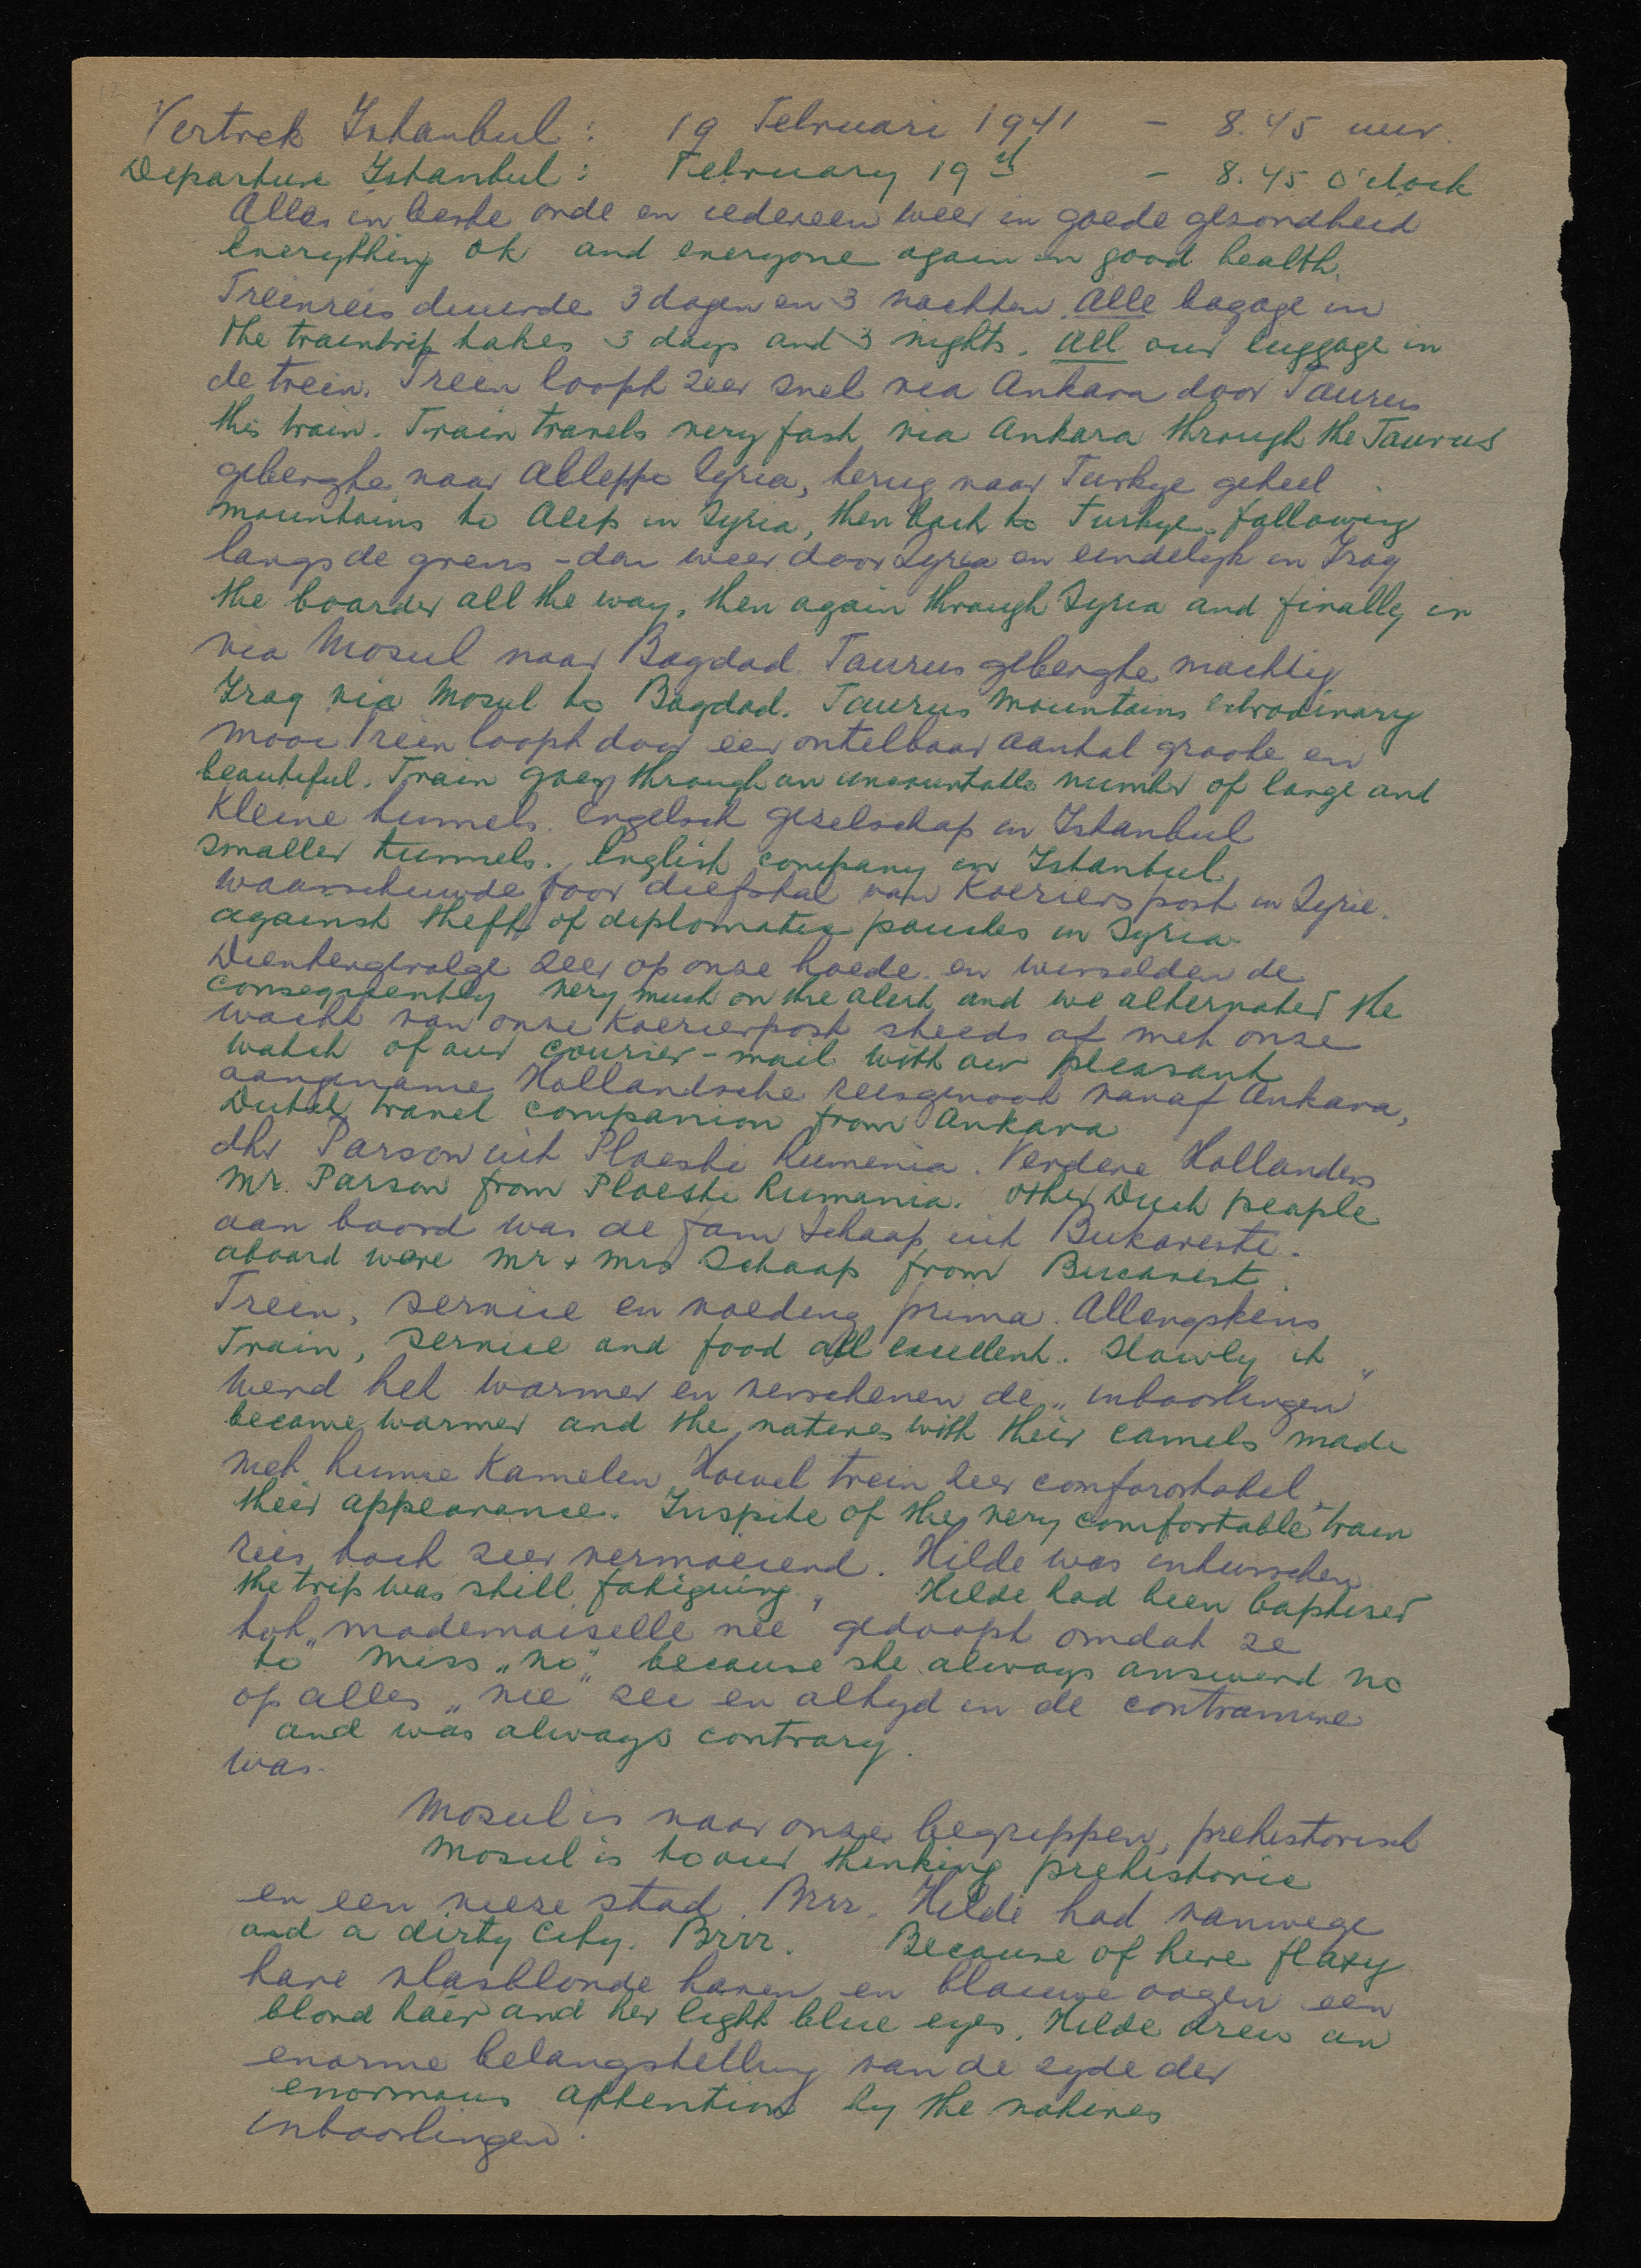 12
Vertrek Istanbul : 19 Februari 1941 - 8.45 uur.
Departure Istanbul : February 19th - 8.45 O'clock
Alles in beste orde en iedereen weer in goede gezondheid
Everything ok and everyone again in good health.
Treinreis duurde 3 dagen en 3 nachten. Alle bagage in
The traintrip takes 3 days and 3 nights. All our luggage in
de trein. Trein loopt zeer snel via Ankara door Taurus
this train. Train travels very fast via Ankara through the Taurus
gebergte naar Alleppo Syria, terug naar Turkye geheel
mountains to Alep in Syria, then back to Turkye following
langs de grens - dan weer door Syria en eindelyk in Iraq
the boarder all the way, then again through Syria and finally in
via Mosul naar Bagdad. Taurus gebergte machtig
Iraq via Mosul to Bagdad. Taurus mountains extraodinary
mooi Trein loopt door een ontelbaar aantal groote en
beautiful. Train goes through an uncountable number of large and
kleine tunnels. Engelsch gezelschap in Istanbul
smaller tunnels. English company in Istanbul
waarschuwde voor diefstal van Koerierspost in Syrie.
against theft of diplomatic pouches in Syria.
Dientengevolge zeer op onze hoede en wisselden de
consequently very much on the alert and we alternated the
wacht van onze Koerierpost steeds af met onze
watch of our courier-mail with our pleasant
aangename Hollandsche reisgenoot vanaf Ankara,
Dutch travel companion from Ankara
dhr Parson uit Ploesti Rumenia. Verdere Hollanders
Mr. Parson from Ploesti Rumania. Other Duch people
aan boord was de fam Schaap uit Bukareste.
aboard were Mr + Mrs Schaap from Bucarest.
Trein, service en voeding prima. Allengskens
Train, service and food all excellent. Slowly it
werd het warmer en verschenen de „inboorlingen"
became warmer and the natives with their camels made
met hunne Kamelen. Hoewel trein zeer comforotabel,
their appearance. Inspite of the very comfortable train
reis toch zeer vermoeiend. Hilde was intusschen
the trip was still fatiguing. Hilde had been baptised
tot „mademoiselle nee" gedoopt omdat ze
to Miss „no" because she always answerd no
op alles „nee" zei en altyd in de contramine
and was always contrary.
was.
Mosul is naar onze begrippen, prehistorisch
Mosul is to our thinking prehistoric
en een vieze stad. Brrr. Hilde had vanwege
and a dirty city. Brrr. Because of here flaxy
hare vlasblonde haren en blauwe oogen een
blond hair and her light blue eyes, Hilde drew an
enorme belangstelling van de zyde der
enormous attention by the natives
inboorlingen!